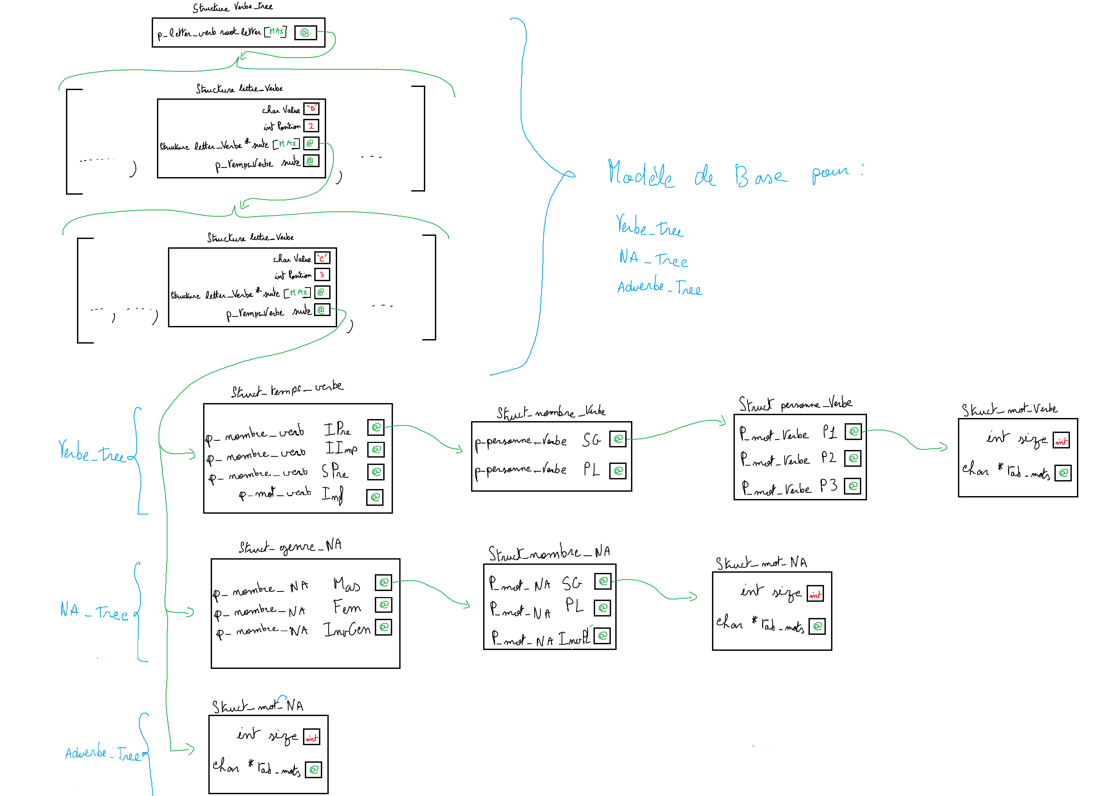 Structure Verbe_tree
p_letter_verb root_letter [MAX] @
Structure lettre_Verbe
char Value 'o'
int Position 2
Structure letter_Verbe * suite [MAX] @
p_temps_Verbe suite @
......, , ...
Structure lettre_Verbe
char Value 'c'
int Position 3
Structure letter_Verbe * suite [MAX] @
p_temps_Verbe suite @
..., ...., , ...
Modèle de Base pour :
Verbe_tree
NA_Tree
Adverbe_Tree
Verbe_tree
Struct_temps_verbe
p_nombre_verb IPre @
p_nombre_verb IImp @
p_nombre_verb SPre @
p_mot_verb Inf @
Struct_nombre_Verbe
p_personne_Verbe SG @
p_personne_Verbe PL @
Struct personne_Verbe
P_mot_Verbe P1 @
P_mot_Verbe P2 @
P_mot_Verbe P3 @
Struct_mot_Verbe
int size int
char * tab_mots @
NA_Tree
Struct_genre_NA
p_nombre_NA Mas @
p_nombre_NA Fem @
p_nombre_NA InvGen @
Struct_nombre_NA
P_mot_NA SG @
P_mot_NA PL @
P_mot_NA InvPL @
Struct_mot_NA
int size int
char * tab_mots @
Adverbe_Tree
Struct_mot_NA
int size int
char * tab_mots @